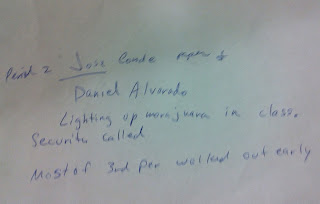 Period 2 Jose Conde paper &
Daniel Alvorado
Lighting up marajuana in class.
Security called
Most of 3rd Per walked out early